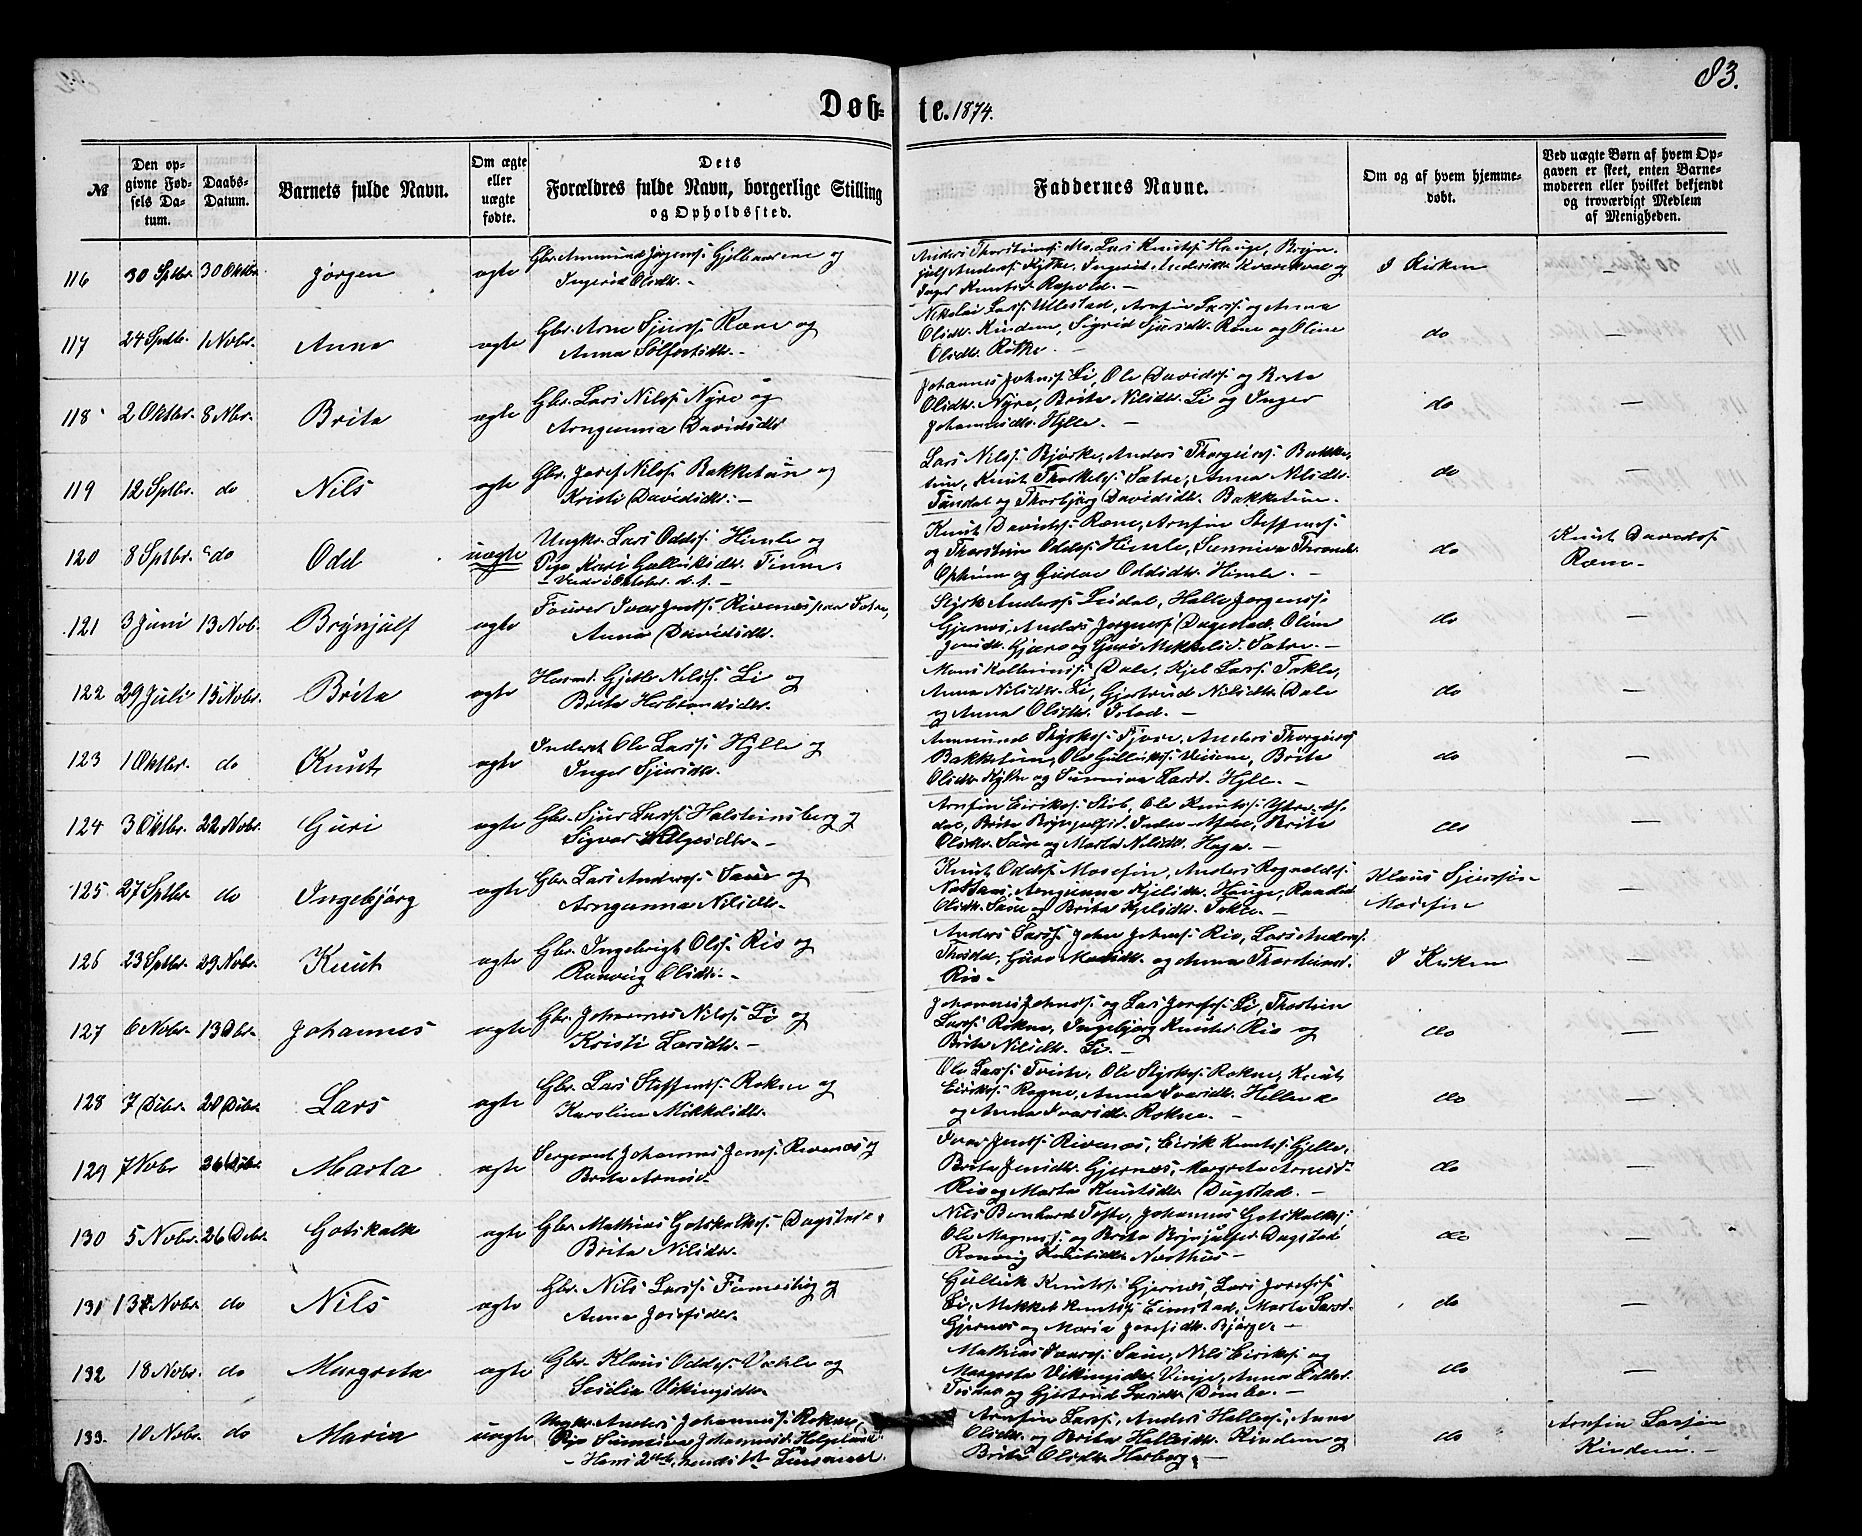 83.
Døb-
te. 1874.
№
Den op-
givne Fød-
sels Da-
tum.
Daabs-
Datum.
Barnets fulde Navn.
Om ægte
eller
uægte
fødte.
Dets
Forældres fulde Navn, borgerlige Stilling
og Opholdssted.
Faddernes Navne.
Om og af hvem hjemme-
døbt.
Ved uægte Børn af hvem Op-
gaven er skeet, enten Barne-
moderen eller hvilket bekjendt
og troværdigt Medlem
af Menigheden.
116 30 Sptbr. 30 Oktbr. Jørgen ægte Gbr. Ammund Jørgens. og
Ingerid Olsdtr. —
Anders Thorsteins. Mo, Lars Knuts. Hauge, Bryn-
julf Anders. Kytke, Ingerid og
Inger Knutsd. Rapold. —
I Kirken —
117 24 Sptbr. 1 Nobr. Anna ægte Gbr. Arne Sjurs. Røne og
Anna Solfestsdtr. —
Nikolai Lars. Ullestad, Arnfin Lars. og Anna
Olsdtr. Kindem, Sigrid Sjursdtr. Røne og Oline
Olsdtr. Røthe. —
do —
118 2 Oktbr. 8 Nbr. Brita ægte Gbr. Lars Nils. Nyre og
Arngunna Davidsdtr.
Johannes Johns. Li, Ole Davids. og Brita
Olsdtr. Nyre, Brita Nilsdtr. Li og Inger
Johannesdtr. Hylle. —
do —
119 12 Sptbr. do Nils ægte Gbr. Josef Nils. Bakketun og
Kristi Davidsdtr. —
Lars Nils. Bjørke, Anders Thorgiers. Bakke-
tun, Knut Thorkels. Sætre, Anna Nilsdtr.
Tandal og Thorbjørg Davidsdtr. Bakketun. —
do —
120 8 Sptbr. do Odd uægte Ungkr. Lars Odds. Himle og
Pige Kari Gulleiksdtr. Finne.
Knut Davids. Røne, Arnfin Steffens.
og Thorstein Odds. Himle, Sunniva
Opheim og Gudve Oddsdtr. Himle. —
do Knut Davids.
Røne —
121 3 Juni 13 Nob. Brynjulf ægte Fourer Ivar Jens. Rivenæs paa Sætre,
Anna Davidsdtr.
Styrk Anders. Leidal, Halle Jørgens.
Gjernes, Anders Jørgens. Dagestad, Oline
Jensdtr. Gjære og Guri Mikkelsd. Sætre. —
do —
122 29 Juli 15 Nobr. Brita ægte Husmd. Gjetle Nils. Li og
Brita Herbrandsdtr.
Mons Kolbeins. Dale, Kjel Lars. Takle,
Anna Nilsdtr. Li, Gjertrud Nilsdtr. Dale
og Anna Olsdtr. Istad. —
do —
123 1 Oktbr. do Knut ægte Inderst Ole Lars. Hylle og
Inger Sjursdtr.
Ammund Styrks. Fjose, Anders Thorgiers.
Bakketun, Ole Gulleiks. Veiene, Brita
Olsdtr. Kytke og Sunniva Larsd. Hylle. —
do —
124 3 Oktbr. 22 Nobr. Guri ægte Gbr. Sjur Lars. Holsteinsberg og
Sigvor Helgesdtr. —
Arnfin Eiriks. Ole Knuts.
dal, Brita Brynjulfsd. Brita
Olsdtr. Saue og Marta Nilsdtr. —
do —
125 27 Sptbr. do Ingebjørg ægte Gbr. Lars Anders. Saue og
Arngunna Nilsdtr. —
Knut Odds. Mosefin, Anders Rognalds.
Arngunna Kjelsdtr. Hauge,
Olsdtr. Saue og Brita Kjelsdtr. Takle. —
Klaus Sjursøn
Mosefin —
126 23 Sptbr. 29 Nobr. Knut ægte Gbr. Ingebrigt Ols. Rio og
Ranveig Olsdtr. —
Anders Lars. John Johns. Rio, Lars Anders.
Guro og Anna Thorsteinsd.
Rio —
I Kirken —
127 6 Nobr. 13 Dbr. Johannes ægte Gbr. Johannes Nils. Li og
Kristi Larsdtr. —
Johannes Johns. og Lars Josefs. Li, Thorstein
Lars. Rokne, Ingebjørg Knutsd. Rio og
Brita Nilsdtr. Li. —
do —
128 7 Debr. 20 Debr. Lars ægte Gbr. Lars Steffens. Rokne og
Karolina Mikkelsdtr.
Ole Lars. Tvite, Ole Styrks. Rokne, Knut
Eiriks. Rogne, Anna Ivarsdtr. Hellende
og Anna Ivarsdtr. Rokne. —
do —
129 7 Nobr 26 Debr. Marta ægte Sergeant Johannes Jens. Rivenæs og
Brita Arnesd.
Ivar Jens. Rivenæs, Eirik Knuts. Gjelle,
Brita Jensdtr. Gjernæs, Margreta Arnesd.
Rio og Marta Knutsdtr. Dugstad. —
do —
130 5 Nobr. 26 Debr. Gotskalk ægte Gbr. Mathias Gotskalks. Dagstad,
Brita Nilsdtr.
Nils Bernhard Tofte, Johannes Gotskalks.
Ole Magnus. og Brita Brynjulfsd. Dagstad
Ranveig Knutsdtr. Næsthus —
do —
131 13 Nobr. do Nils ægte Gbr. Nils Lars. Finnesteig og
Anna Josefsdtr.
Gulleik Knuts. Gjernæs, Lars Josefs.
Li, Mikkel Knuts. Eimstad, Marta Larsd.
Gjernæs og Maria Josefsdtr. Bjørge. —
do —
132 18 Nobr. do Margreta ægte Gbr. Klaus Odds. Vakle og
Sesilia Vikingsdtr.
Mathias Ivars. Saue, Nils Eiriks. og
Margreta Vikingsdtr. Vinje, Anna
og Gjertrud Larsdtr. Dømbe. —
do —
133. 10 Nobr. do Maria uægte Ungkr. Anders Johannes. Rokne,
Pige Sunniva Johannesd. Helgeland.
— Hans 2det, hendes 1st
Arnfin Lars., Anders Halles., Anna
Olsdtr. og Brita Hallesdtr. Kindem og
Brita Olsdtr. Horberg. —
do Arnfin Larsøn
Kindem. —